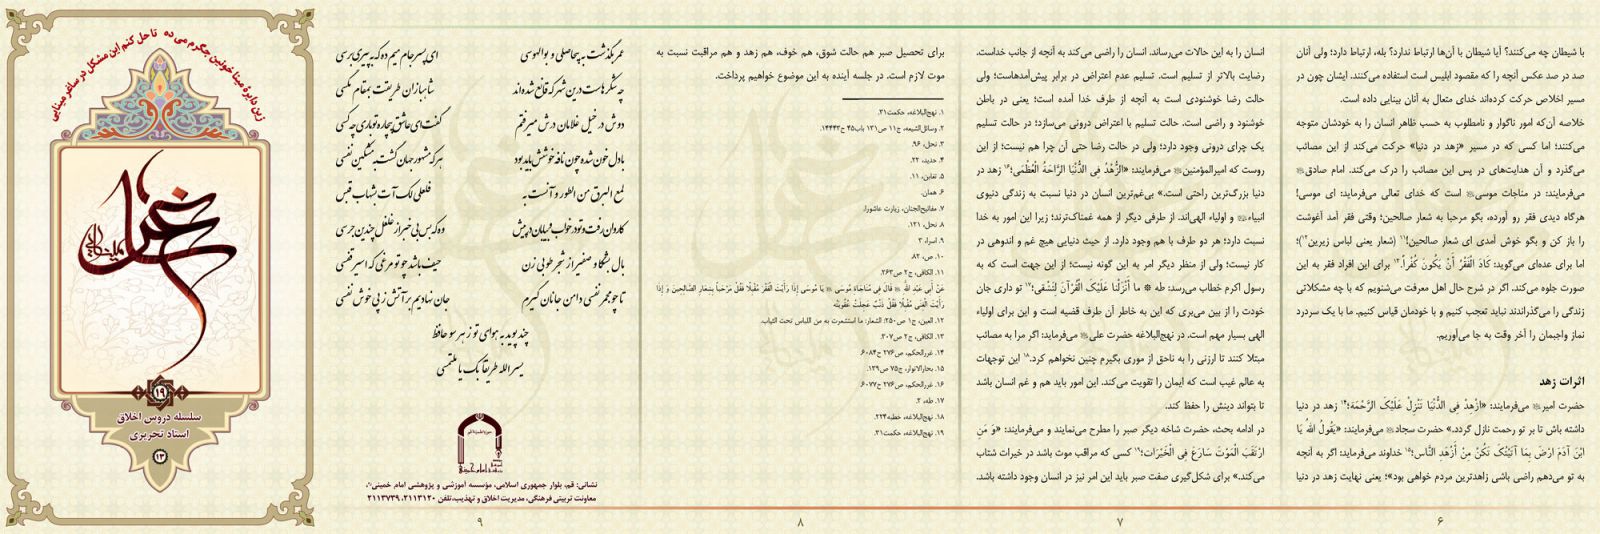 با شیطان چه می‌کنند؟ آیا شیطان با آن‌ها ارتباط ندارد؟ بله، ارتباط دارد؛ ولی آنان
صد در صد عکس آنچه را که مقصود ابلیس است استفاده می‌کنند. ایشان چون در
مسیر اخلاص حرکت کرده‌اند خدای متعال به آنان بینایی داده است.
خلاصه آن‌که امور ناگوار و نامطلوب به حسب ظاهر انسان را به خودشان متوجه
می‌کنند؛ اما کسی که در مسیر «زهد در دنیا» حرکت می‌کند از این مصائب
می‌گذرد و آن هدایت‌های در پس این مصائب را درک می‌کند. امام صادق
می‌فرمایند: در مناجات موسی است که خدای تعالی می‌فرماید: ای موسی!
هرگاه دیدی فقر رو آورده، بگو مرحبا به شعار صالحین؛ وقتی فقر آمد آغوشت
را باز کن و بگو خوش آمدی ای شعار صالحین!۱۱ (شعار یعنی لباس زیرین۱۲)؛
اما برای عده‌ای می‌گوید: کَادَ الْفَقْرُ أَنْ یَکُونَ کُفْراً.۱۳ برای این افراد فقر به این
صورت جلوه می‌کند. اگر در شرح حال اهل معرفت می‌شنویم که با چه مشکلاتی
زندگی را می‌گذراندند نباید تعجب کنیم و با خودمان قیاس کنیم. ما با یک سردرد
نماز واجبمان را آخر وقت به جا می‌آوریم.
اثرات زهد
حضرت امیر می‌فرمایند: «ازْهَدْ فِی الدُّنْیَا تَنْزِلْ عَلَیْکَ الرَّحْمَه؛۱۴ زهد در دنیا
داشته باش تا بر تو رحمت نازل گردد.» حضرت سجاد می‌فرمایند: «یَقُولُ اللهُ یَا
ابْنَ آدَمَ ارْضَ بِمَا آتَیْتُکَ تَکُنْ مِنْ أَزْهَدِ النَّاسِ؛۱۵ خداوند می‌فرماید: اگر به آنچه
به تو می‌دهم راضی باشی زاهدترین مردم خواهی بود»؛ یعنی نهایت زهد در دنیا
۶
انسان را به این حالات می‌رساند. انسان را راضی می‌کند به آنچه از جانب خداست.
رضایت بالاتر از تسلیم است. تسلیم عدم اعتراض در برابر پیش‌آمدهاست؛ ولی
حالت رضا خوشنودی است به آنچه از طرف خدا آمده است؛ یعنی در باطن
خوشنود و راضی است. حالت تسلیم با اعتراض درونی می‌سازد؛ در حالت تسلیم
یک چرای درونی وجود دارد؛ ولی در حالت رضا حتی آن چرا هم نیست؛ از این
روست که امیرالمؤمنین می‌فرمایند: «الزُّهْدُ فِی الدُّنْیَا الرَّاحَهُ الْعُظْمَی؛۱۶ زهد در
دنیا بزرگ‌ترین راحتی است.» بی‌غم‌ترین انسان در دنیا نسبت به زندگی دنیوی
انبیاء و اولیاء الهی‌اند. از طرفی دیگر از همه غمناک‌ترند؛ زیرا این امور به خدا
نسبت دارد؛ هر دو طرف با هم وجود دارد. از حیث دنیایی هیچ غم و اندوهی در
کار نیست؛ ولی از منظر دیگر امر به این گونه نیست؛ از این جهت است که به
رسول اکرم خطاب می‌رسد: طه * ما أَنْزَلْنَا عَلَیْکَ الْقُرْآنَ لِتَشْقَی؛۱۷ تو داری جان
خودت را از بین می‌بری که این به خاطر آن طرف قضیه است و این برای اولیاء
الهی بسیار مهم است. در نهج‌البلاغه حضرت علی می‌فرماید: اگر مرا به مصائب
مبتلا کنند تا ارزنی را به ناحق از موری بگیرم چنین نخواهم کرد.۱۸ این توجهات
به عالم غیب است که ایمان را تقویت می‌کند. این امور باید هم و غم انسان باشد
تا بتواند دینش را حفظ کند.
در ادامه بحث، حضرت شاخه دیگر صبر را مطرح می‌نمایند و می‌فرمایند: «وَ مَنِ
ارْتَقَبَ الْمَوْتَ سَارَعَ فِی الْخَیْرَات؛۱۹ کسی که مراقب موت باشد در خیرات شتاب
می‌کند.» برای شکل‌گیری صفت صبر باید این امر نیز در انسان وجود داشته باشد.
۷
برای تحصیل صبر هم حالت شوق، هم خوف، هم زهد و هم مراقبت نسبت به
موت لازم است. در جلسه آینده به این موضوع خواهیم پرداخت.
۱. نهج‌البلاغه، حکمت۳۱.
۲. وسائل‌الشیعه، ج۱۱ ص۱۳۱ باب۴۵ ح۱۴۴۴۳.
۳. نحل، ۹۶.
۴. حدید، ۲۲.
۵. تغابن، ۱۱.
۶. همان.
۷. مفاتیح‌الجنان، زیارت عاشورا.
۸. نحل، ۱۲۱.
۹. اسراء، ۳
۱۰. ص، ۸۲.
۱۱. الکافی، ج۲ ص۲۶۳.
عَنْ أَبِی عَبْدِ اللهِ قَالَ فِی مُنَاجَاهِ مُوسَی یَا مُوسَی إِذَا رَأَیْتَ الْفَقْرَ مُقْبِلًا فَقُلْ مَرْحَباً بِشِعَارِ الصَّالِحِینَ وَ إِذَا
رَأَیْتَ الْغِنَی مُقْبِلًا فَقُلْ ذَنْبٌ عُجِّلَتْ عُقُوبَتُه
۱۲. العین، ج۱ ص۲۵۰: الشعار: ما استشعرت به من اللباس تحت الثیاب.
۱۳. الکافی، ج۲ ص۳۰۷.
۱۴. غررالحکم، ص۲۷۶ ح۶۰۸۴.
۱۵. بحارالانوار، ج۷۵ ص۱۳۹.
۱۶. غررالحکم، ص۲۷۶ ح۶۰۷۷.
۱۷. طه، ۲.
۱۸. نهج‌البلاغه، خطبه۲۲۴.
۱۹. نهج‌البلاغه، حکمت۳۱.
۸
عمر بگذشت به بیحاصلی و بوالهوسی
ای پسر جام میم ده که به پیری برسی
چه شکرهاست درین شهر که قانع شده‌اند
شاهبازان طریقت بمقام مگسی
دوش در خیل غلامان درش میرفتم
گفت ای عاشق بیچاره تو باری چه کسی
بادل خون شده چون نافه خوشش باید بود
هر که مشهور جهان گشت به مشکین نفسی
لمع البرق من الطور و آنست به
فلعلی لک آت بشهاب قبس
کاروان رفت و تو در خواب و بیابان در پیش
وه که بس بی خبر از غلغل چندین جرسی
بال بگشا و صفیر از شجر طوبی زن
حیف باشد چو تو مرغی که اسیر قفسی
تا چو مجمر نفسی دامن جانان گیرم
جان نهادیم بر آتش ز پی خوش نفسی
چند پوید به هوای تو ز هر سو حافظ
یسر الله طریقا بک یا ملتمسی
نشانی: قم، بلوار جمهوری اسلامی، مؤسسه آموزشی و پژوهشی امام خمینی
معاونت تربیتی فرهنگی، مدیریت اخلاق و تهذیب،تلفن ۲۱۱۳۱۲۰، ۲۱۱۳۷۳۹
۹
زین دایرۀ مینا خونین جگرم می ده تا حل کنم این مشکل در ساغر مینایی
۱۹
سلسله دروس اخلاق
استاد تحریری
۱۳